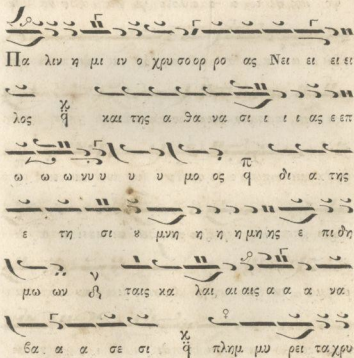 Πα λιν η μι ιν ο χρυ σο ορ ρο ας Νει ει ει ει
λος κ̈ ϥ̈ και της α θα να σι ι ι ας ε επ
ω ω ω νυ υ υ υ μο ος π̈ ϥ̈ δι α της
ε τη σι ȣ μνη η η η μη ης ε πι δη
μω ων ν ταις κα λαι αι αις α α α να
βα α α σε σι κ̈ ϥ̈ πλημ μυ ρει τα χρυ